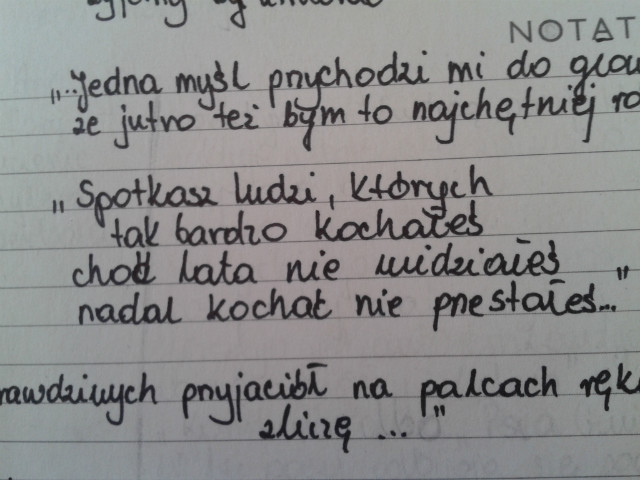 NOTAT
"...Jedna myśl przychodzi mi do głow
że jutro też bym to najchętniej ro
"Spotkasz ludzi, których
tak bardzo kochałeś
choć lata nie widziałeś
nadal kochać nie przestałeś..."
rawdziwych przyjaciół na palcach ręk
zliczę ..."